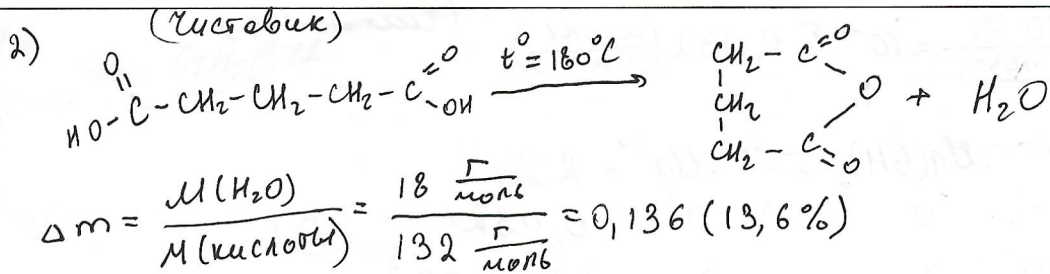 (Чистовик)
2)
HO-C(=O)-CH₂-CH₂-CH₂-C(=O)-OH t°=180°C → CH₂-C(=O)-O-C(=O)-CH₂-CH₂ + H₂O
Δm = M(H₂O) / M(кислоты) = 18 г/моль / 132 г/моль = 0,136 (13,6%)